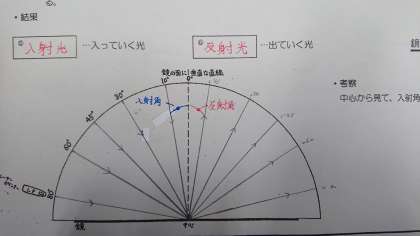 ・結果
④ 入射光 …入っていく光
⑤ 反射光 …出ていく光
鏡
鏡の面に垂直な直線
10° 0°
30°
45°
60°
80°
入射角
反射角
・考察
中心から見て、入射角
鏡
中心